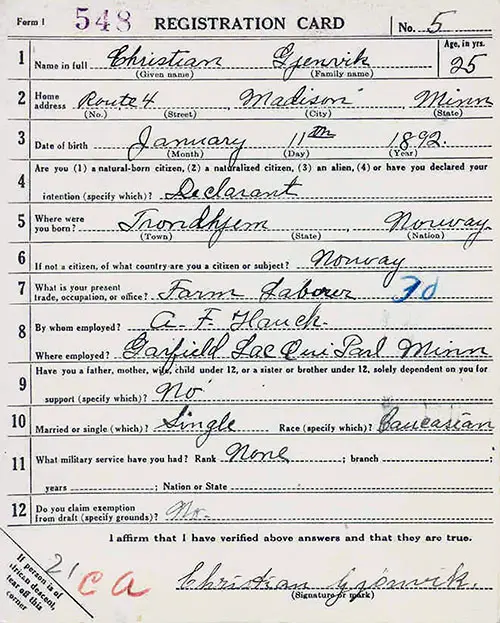 Form 1 548 REGISTRATION CARD No. 5
1 Name in full Christian Gjenvik Age, in yrs. 25
(Given name) (Family name)
2 Home address Route 4 Madison Minn
(No.) (Street) (City) (State)
3 Date of birth January 11th 1892.
(Month) (Day) (Year)
4 Are you (1) a natural-born citizen, (2) a naturalized citizen, (3) an alien, (4) or have you declared your
intention (specify which)? Declarant
5 Where were you born? Trondhjem Norway.
(Town) (State) (Nation)
6 If not a citizen, of what country are you a citizen or subject? Norway
7 What is your present trade, occupation, or office? Farm Laborer 30
8 By whom employed? A. F. Hauck.
Where employed? Garfield Lac Qui Parl Minn
9 Have you a father, mother, wife, child under 12, or a sister or brother under 12, solely dependent on you for
support (specify which)? No
10 Married or single (which)? Single Race (specify which)? Caucasian
11 What military service have you had? Rank None ; branch ;
years ; Nation or State
12 Do you claim exemption from draft (specify grounds)? No.
I affirm that I have verified above answers and that they are true.
If person is of African descent, tear off this corner
21 CA
Christian Gjønvik.
(Signature or mark)